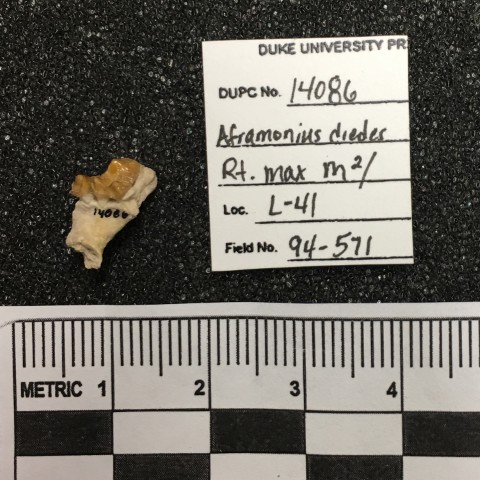 DUKE UNIVERSITY PR
DUPC No. 14086
Aframonius diedes
Rt. max m²/
Loc. L-41
Field No. 94-571
14086
METRIC 1 2 3 4